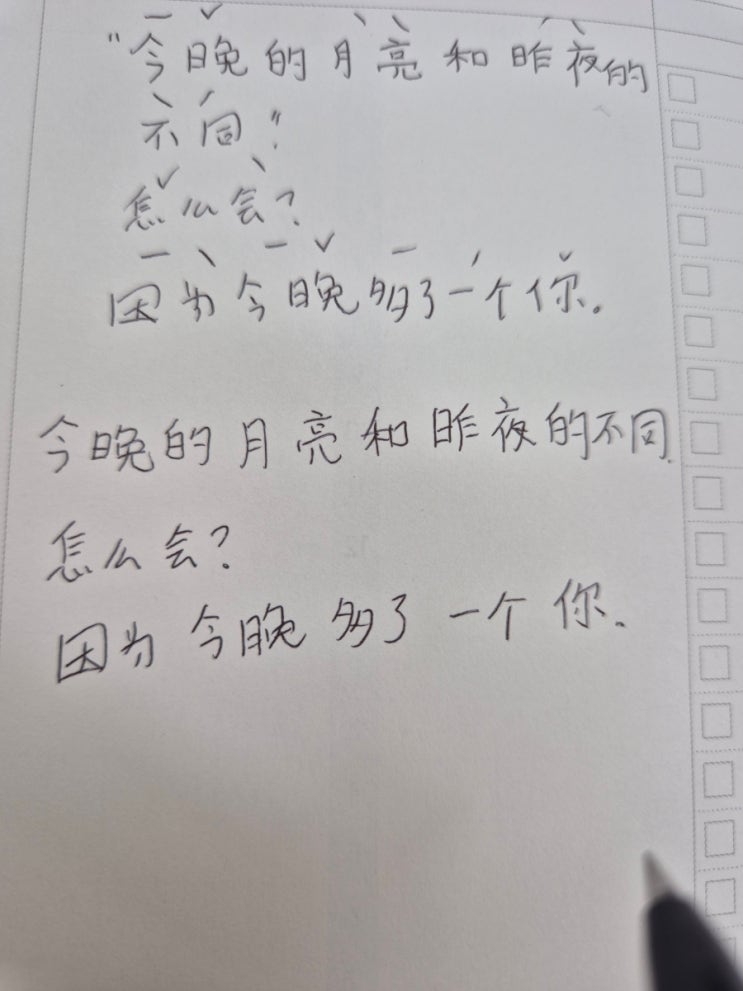 "今晚的月亮和昨夜的
不同"
怎么会?
因为今晚多了一个你.
今晚的月亮和昨夜的不同.
怎么会?
因为今晚多了一个你.